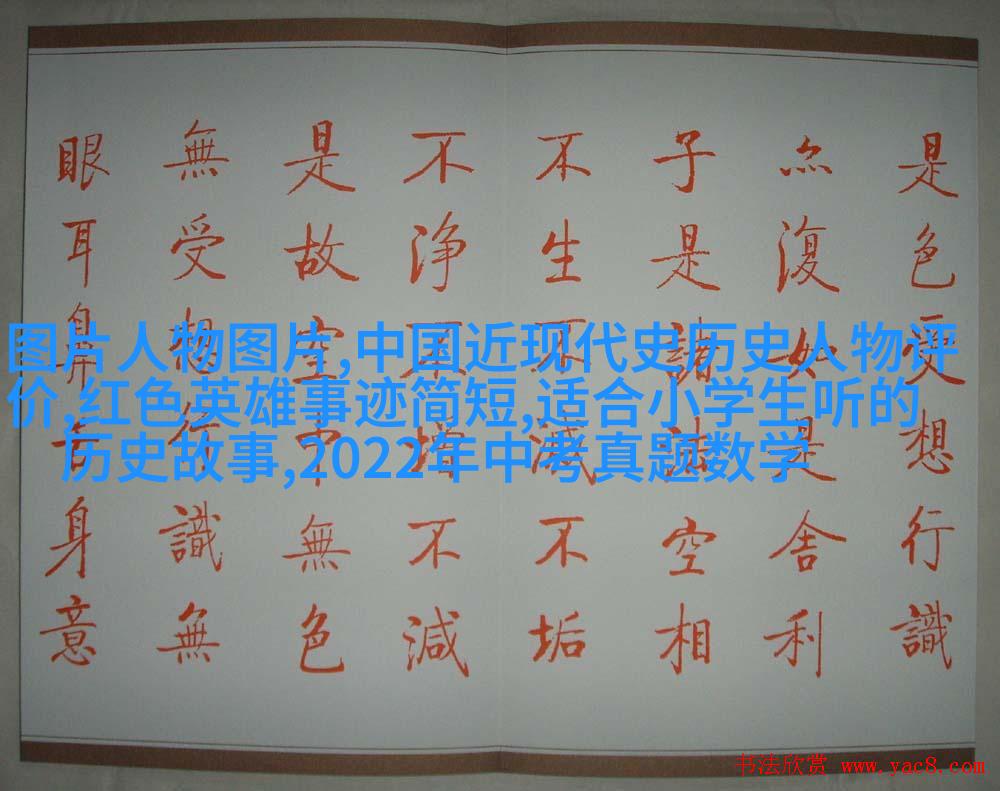 是色受想行識
亦復如是舍利
子是諸法空相
不生不滅不垢
不浄不增不減
是故空中無色
無受想行識無
眼耳鼻舌身意
图片人物图片,中国近现代史历史人物评
价,红色英雄事迹简短,适合小学生听的
历史故事,2022年中考真题数学
书法欣赏 www.yac8.com